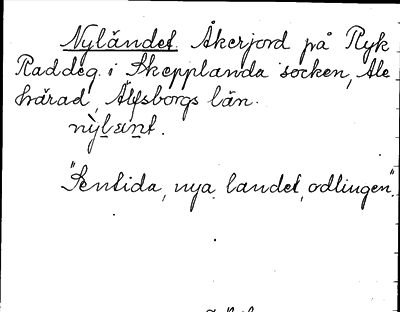 Nyländet. Åkerjord på Ryk
Raddeg. i Skepplanda socken, Ale
härad, Älfsborgs län.
nỳlant.
"Sentida, nya landet, odlingen".